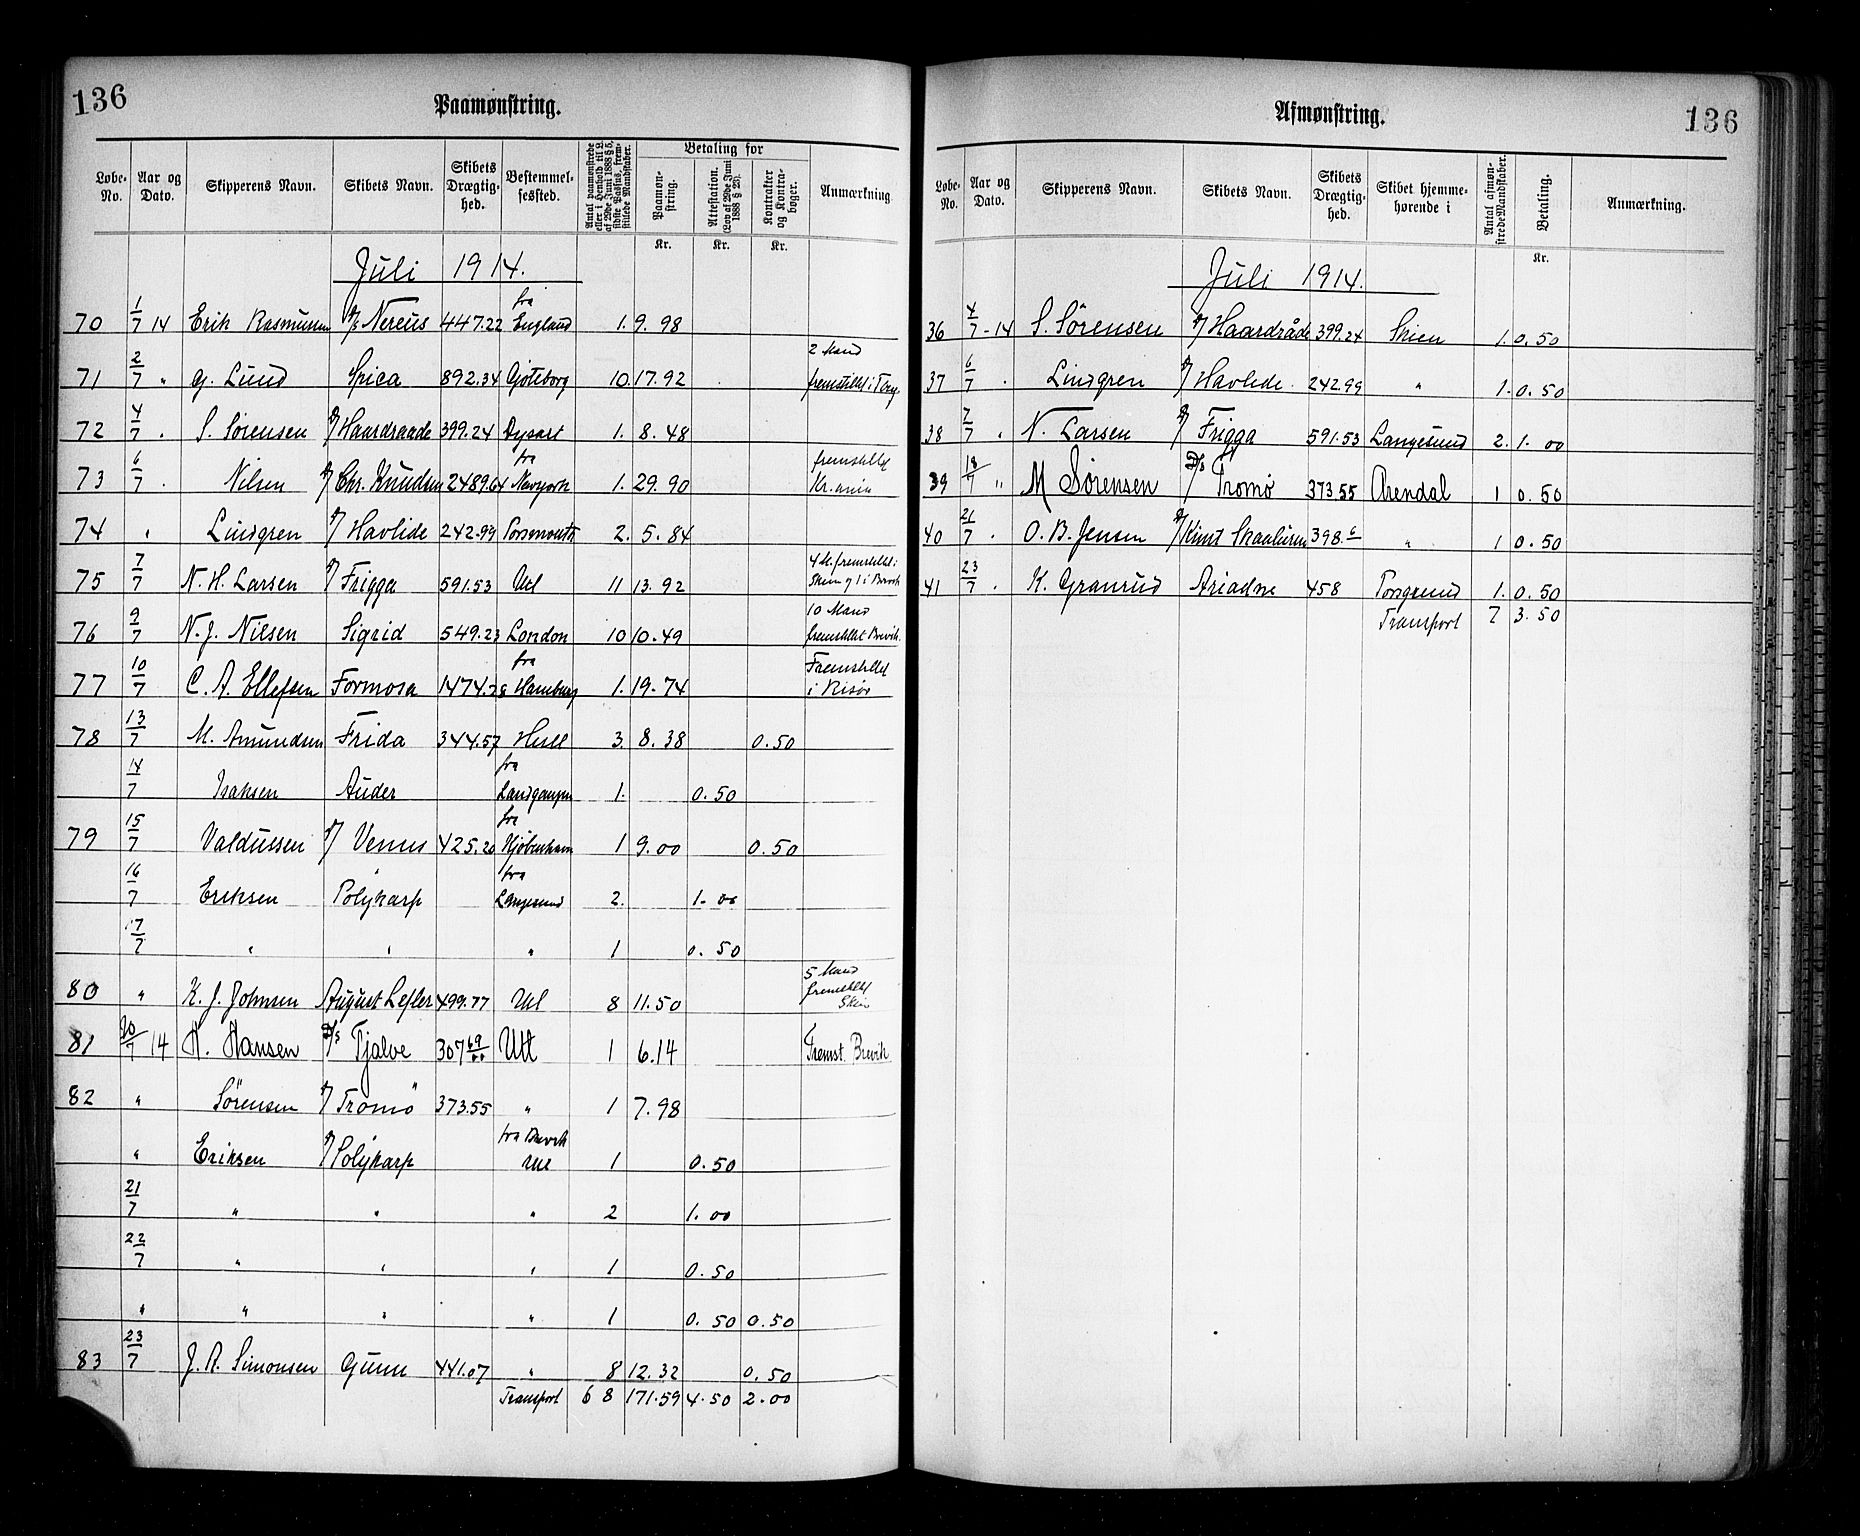 136
Paamønstring.
Løbe-No. | Aar og Dato. | Skipperens Navn. | Skibets Navn. | Skibets Drægtig-hed. | Bestemmel-sessted. | Antal paamønstrede eller i Henhold til L. af 29de Juni 1888 § 5, sidste Passus, frem-stillede Mandskaber. | Betaling for Paamøn-string. Kr. | Attestation. (Lov af 29de Juni 1888 § 25). Kr. | Kontrakter og Kontra-bøger. Kr. | Anmærkning
Juli 1914.
70 | 1/7 14 | Erik Rasmussen | S/S Nereus | 447.22 | fra England | 1. | 9.98
71 | 2/7 " | G. Lund | Spica | 892.34 | Gøteborg | 10. | 17.92 | 2 Mand fremstillet i
72 | 4/7 . | S. Sørensen | Haardraade | 399.24 | Dysart | 1. | 8.48
73 | 6/7 . | Nilsen | Chr. Knudsen | 2489.64 | fra Newyork | 1. | 29.90 | fremstillet Kr.ania
74 | " | Lindgren | Havlide | 242.99 | Porsmouth | 2. | 5.84
75 | 7/7 | N. H. Larsen | Frigga | 591.53 | Utl | 11 | 13.92 | 4 M. fremstillet i Skien og 1 i Brevik
76 | 9/7 | N. J. Nilsen | Sigrid | 549.23 | London | 10 | 10.49 | 10 Mand fremstillet Brevik
77 | 10/7 | C. A. Ellefsen | Formosa | 1474.28 | fra Hamburg | 1. | 19.74 | Fremstillet i Risør
78 | 13/7 | M. Amundsen | Frida | 344.57 | Hull | 3. | 8.38 | 0.50
14/7 | Isaksen | Auder | fra | 1. | 0.50
79 | 15/7 | Valdussen | Venus | 425.20 | fra Kjøbenhavn | 1 | 9.00 | 0.50
16/7 | Eriksen | Polykarp | fra Langesund | 2. | 1.00
17/7 | " | " | " | 1 | 0.50
80 | " | K. J. Johnsen | August Lefler | 499.77 | Utl | 8 | 11.50 | 5 Mand fremstillet Skien
81 | 20/7 14 | H. Hansen | D/S Tjalve | 307 69/00 | Utl | 1 | 6.14 | Fremst. Brevik
82 | " | Sørensen | Tromö | 373.55 | " | 1 | 7.98
" | Eriksen | Polykarp | fra Brevik Utl | 1 | 0.50
21/7 | " | " | " | 2 | 1.00
22/7 | " | " | " | 1 | 0.50
" | " | " | " | 1 | 0.50 | 0.50
83 | 23/7 | J. R. Simonsen | Gunn | 441.07 | " | 8 | 12.32 | 0.50
Transport | 68 | 171.59 | 4.50 | 2.00
136
Afmønstring.
Løbe-No. | Aar og Dato. | Skipperens Navn. | Skibets Navn. | Skibets Drægtig-hed. | Skibet hjemme-hørende i | Antal afmøn-strede Mandskaber. | Betaling. Kr. | Anmærkning.
Juli 1914.
36 | 4/7 - 14 | S. Sørensen | Haardråde | 399.24 | Skien | 1. | 0.50
37 | 6/7 . | Lindgren | Havlide. | 242.99 | " | 1. | 0.50
38 | 7/7 " | N. Larsen | Frigga | 591.53 | Langesund | 2. | 1.00
39 | 18/7 " | M Sørensen | D/S Tromø | 373.55 | Arendal | 1 | 0.50
40 | 21/7 . | O. B. Jensen | Knut Skaaluren | 398.6 | " | 1 | 0.50
41 | 23/7 . | K. Granrud | Ariadne | 458 | Porsgrund | 1. | 0.50
Transport | 7 | 3.50